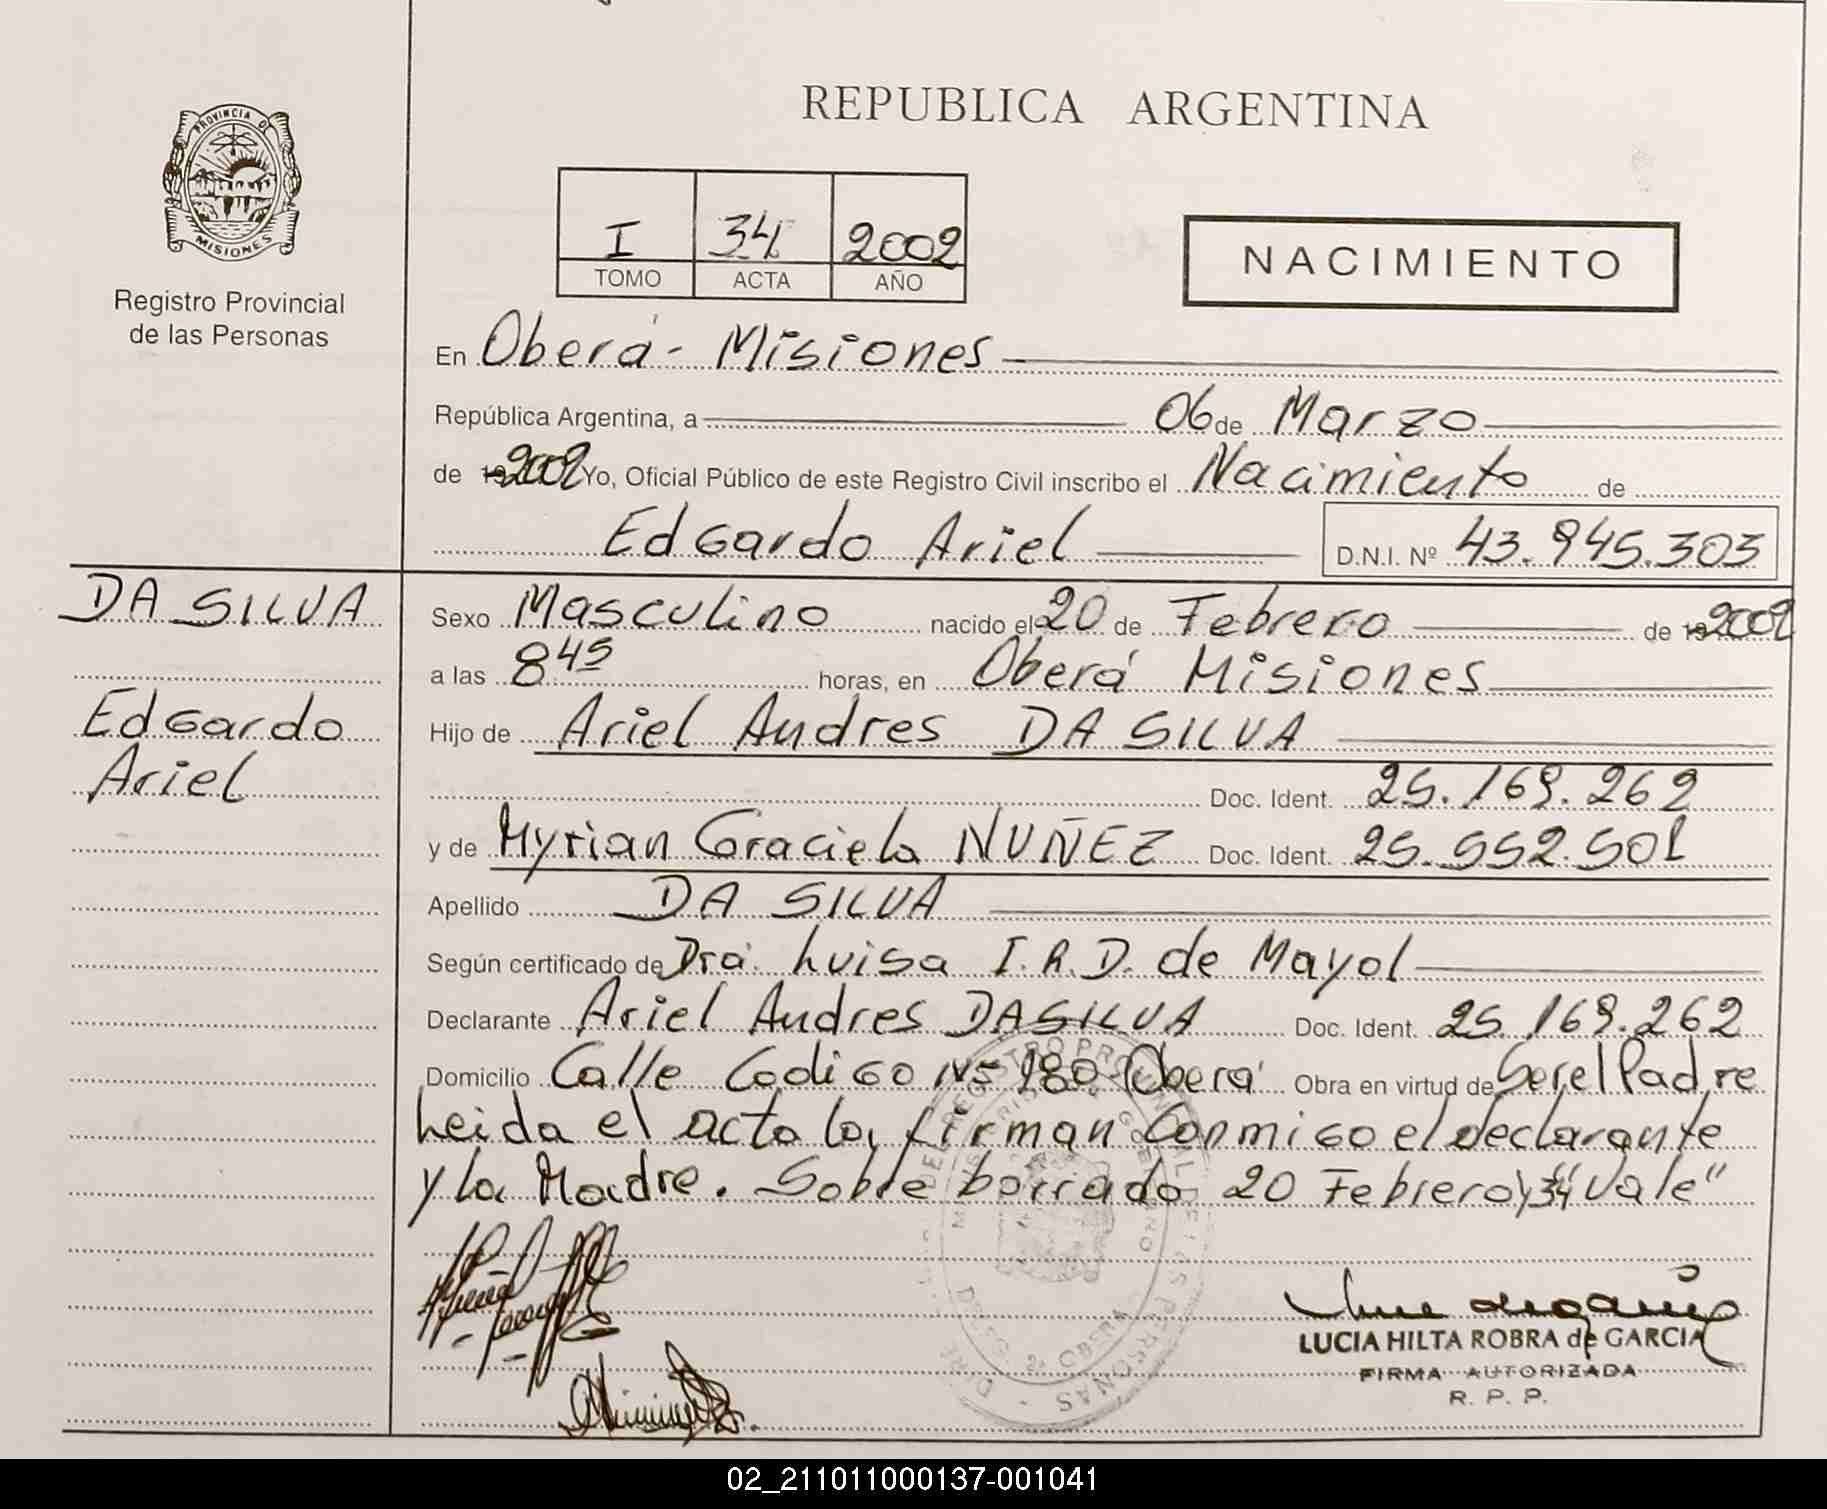 REPUBLICA ARGENTINA
PROVINCIA D
MISIONES
Registro Provincial
de las Personas
I 34 2002
TOMO ACTA AÑO
NACIMIENTO
En Oberá - Misiones
República Argentina, a 06 de Marzo
de 19 2002 Yo, Oficial Público de este Registro Civil inscribo el Nacimiento de
Edgardo Ariel D.N.I. Nº 43.945.303
DA SILVA
Edgardo
Ariel
Sexo Masculino nacido el 20 de Febrero de 19 2002
a las 8 45 horas, en Oberá Misiones
Hijo de Ariel Andres DA SILVA
Doc. Ident. 25.169.262
y de Myrian Graciela NUÑEZ Doc. Ident. 25.552.501
Apellido DA SILVA
Según certificado de Dra. Luisa I.R.D. de Mayol
Declarante Ariel Andres DA SILVA Doc. Ident. 25.169.262
Domicilio Calle Codigo Nº 180 Oberá Obra en virtud de Ser el Padre
Leida el acta la firman Conmigo el declarante
y la Madre. Sobre borrado 20 Febrero y 34 "Vale"
LUCIA HILTA ROBRA de GARCIA
FIRMA AUTORIZADA
R. P. P.
02_211011000137-001041